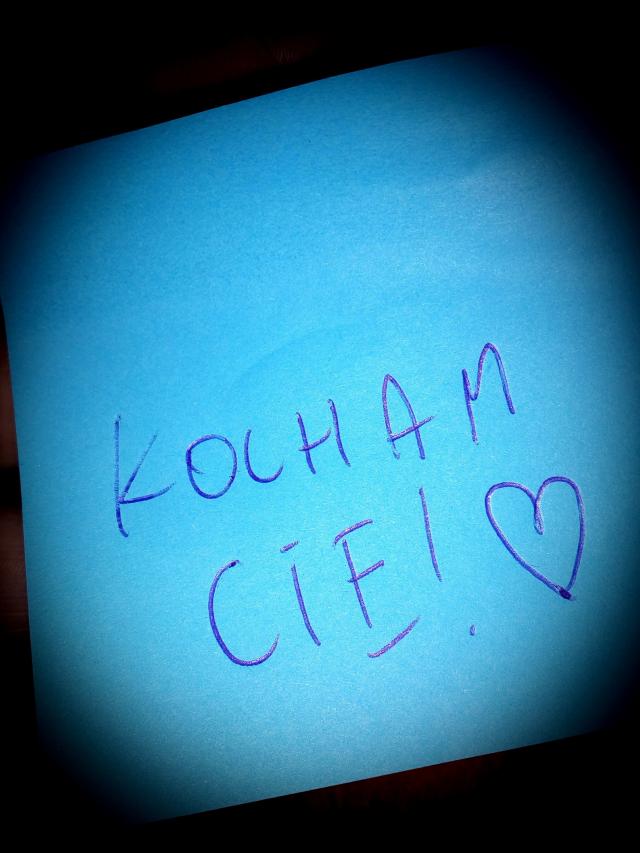 KOCHAM
CIE! ♡